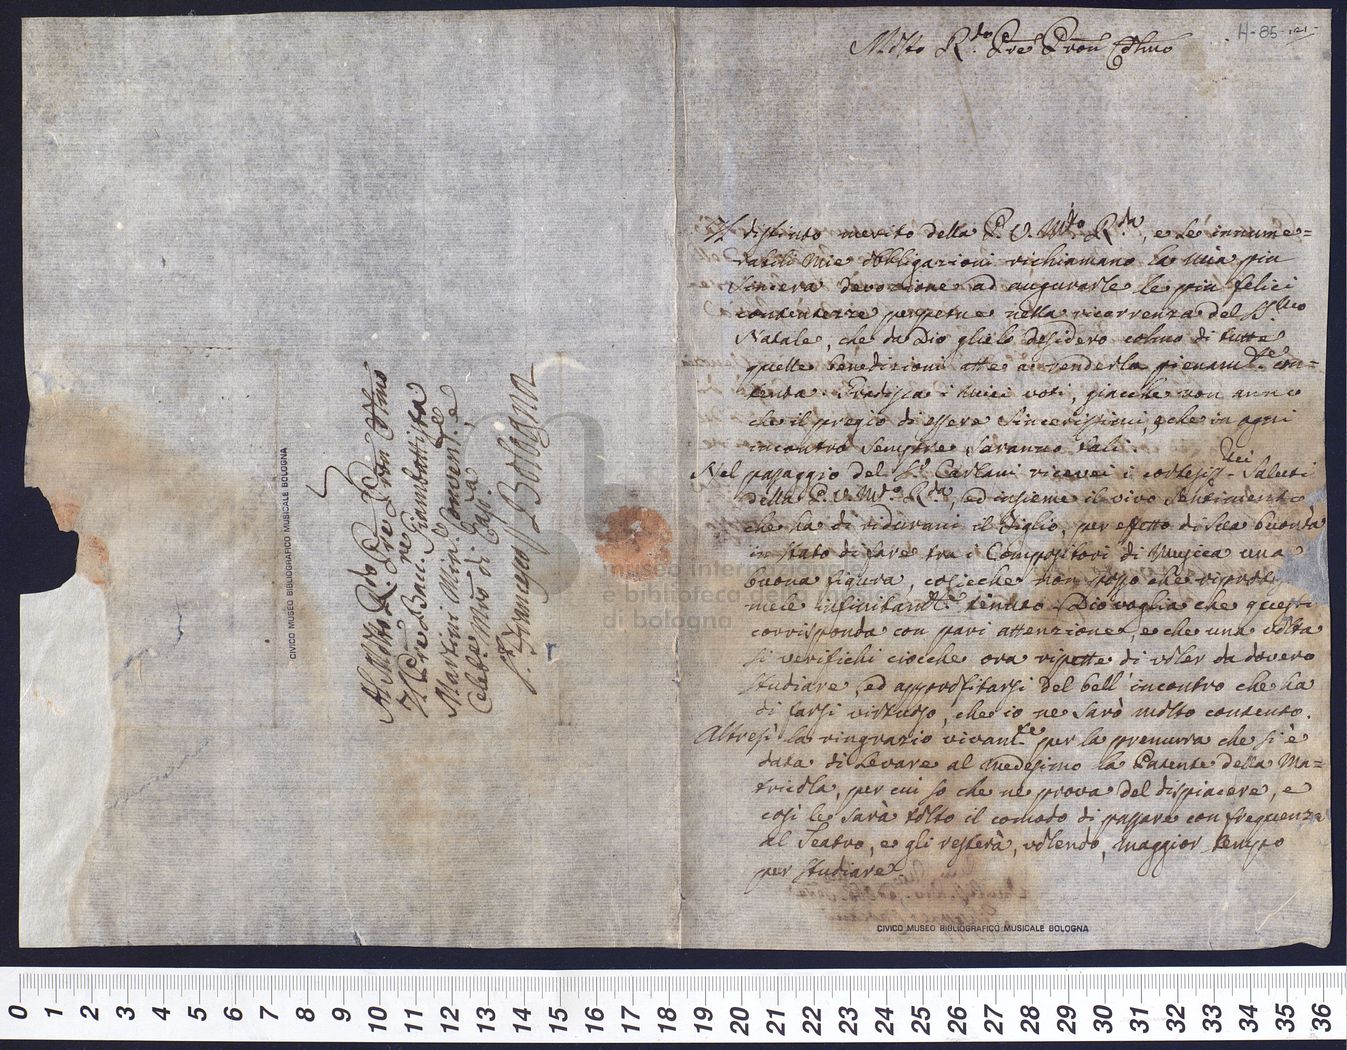 H-85-121-
Molto R.do Pre Pron Colmo
Il distinto merito della P. V. M.to R.da, e le innume=
rabili mie obbligazioni richiamano la mia piu
sincera devozione ad augurarle le piu felici
contentezze perpetue nella ricorrenza del S.mo
Natale, che da Dio glielo desidero colmo di tutte
quelle benedizioni atte a renderla pienam.te con=
tenta. Gradisca i miei voti, giacche non anno
che il pregio di essere sincerissimi, e che in ogni
incontro sempre saranno tali.
Nel passaggio del S.r Carlani ricevei i cortesiss.mi Saluti
della P. V. M.to R.da, ed insieme il vivo sentimento
che ha di ridurmi il Figlio, per effetto di sua bontà
in stato di fare tra i Compositori di Musica una
buona figura, cosicche non posso che
infinitam.te tenuto. Dio voglia che questi
corrisponda con pari attenzione, e che una volta
si verifichi ciocche ora ripette di voler da dovero
studiare, ed approfitarsi del bell'incontro che ha
di farsi virtuoso, che io ne sarò molto contento.
Altresì la ringrazio vivam.te per la premura che si è
data di levare al medesimo la Patente della Ma=
tricola, per cui so che ne prova del dispiacere, e
così le sarà tolto il comodo di passare con frequenza
al Teatro, e gli resterà, volendo, maggior tempo
per studiare.
CIVICO MUSEO BIBLIOGRAFICO MUSICALE BOLOGNA
Al Molto R.do Pre Pron Colmo
Il Pre Bacc.re Giambattista
Martini Min.le Convent.le, e
Celebe Mro di Cap.la
S. Francesco / Bologna
CIVICO MUSEO BIBLIOGRAFICO MUSICALE BOLOGNA
museo internazionale
e biblioteca della musica
di bologna
0 1 2 3 4 5 6 7 8 9 10 11 12 13 14 15 16 17 18 19 20 21 22 23 24 25 26 27 28 29 30 31 32 33 34 35 36